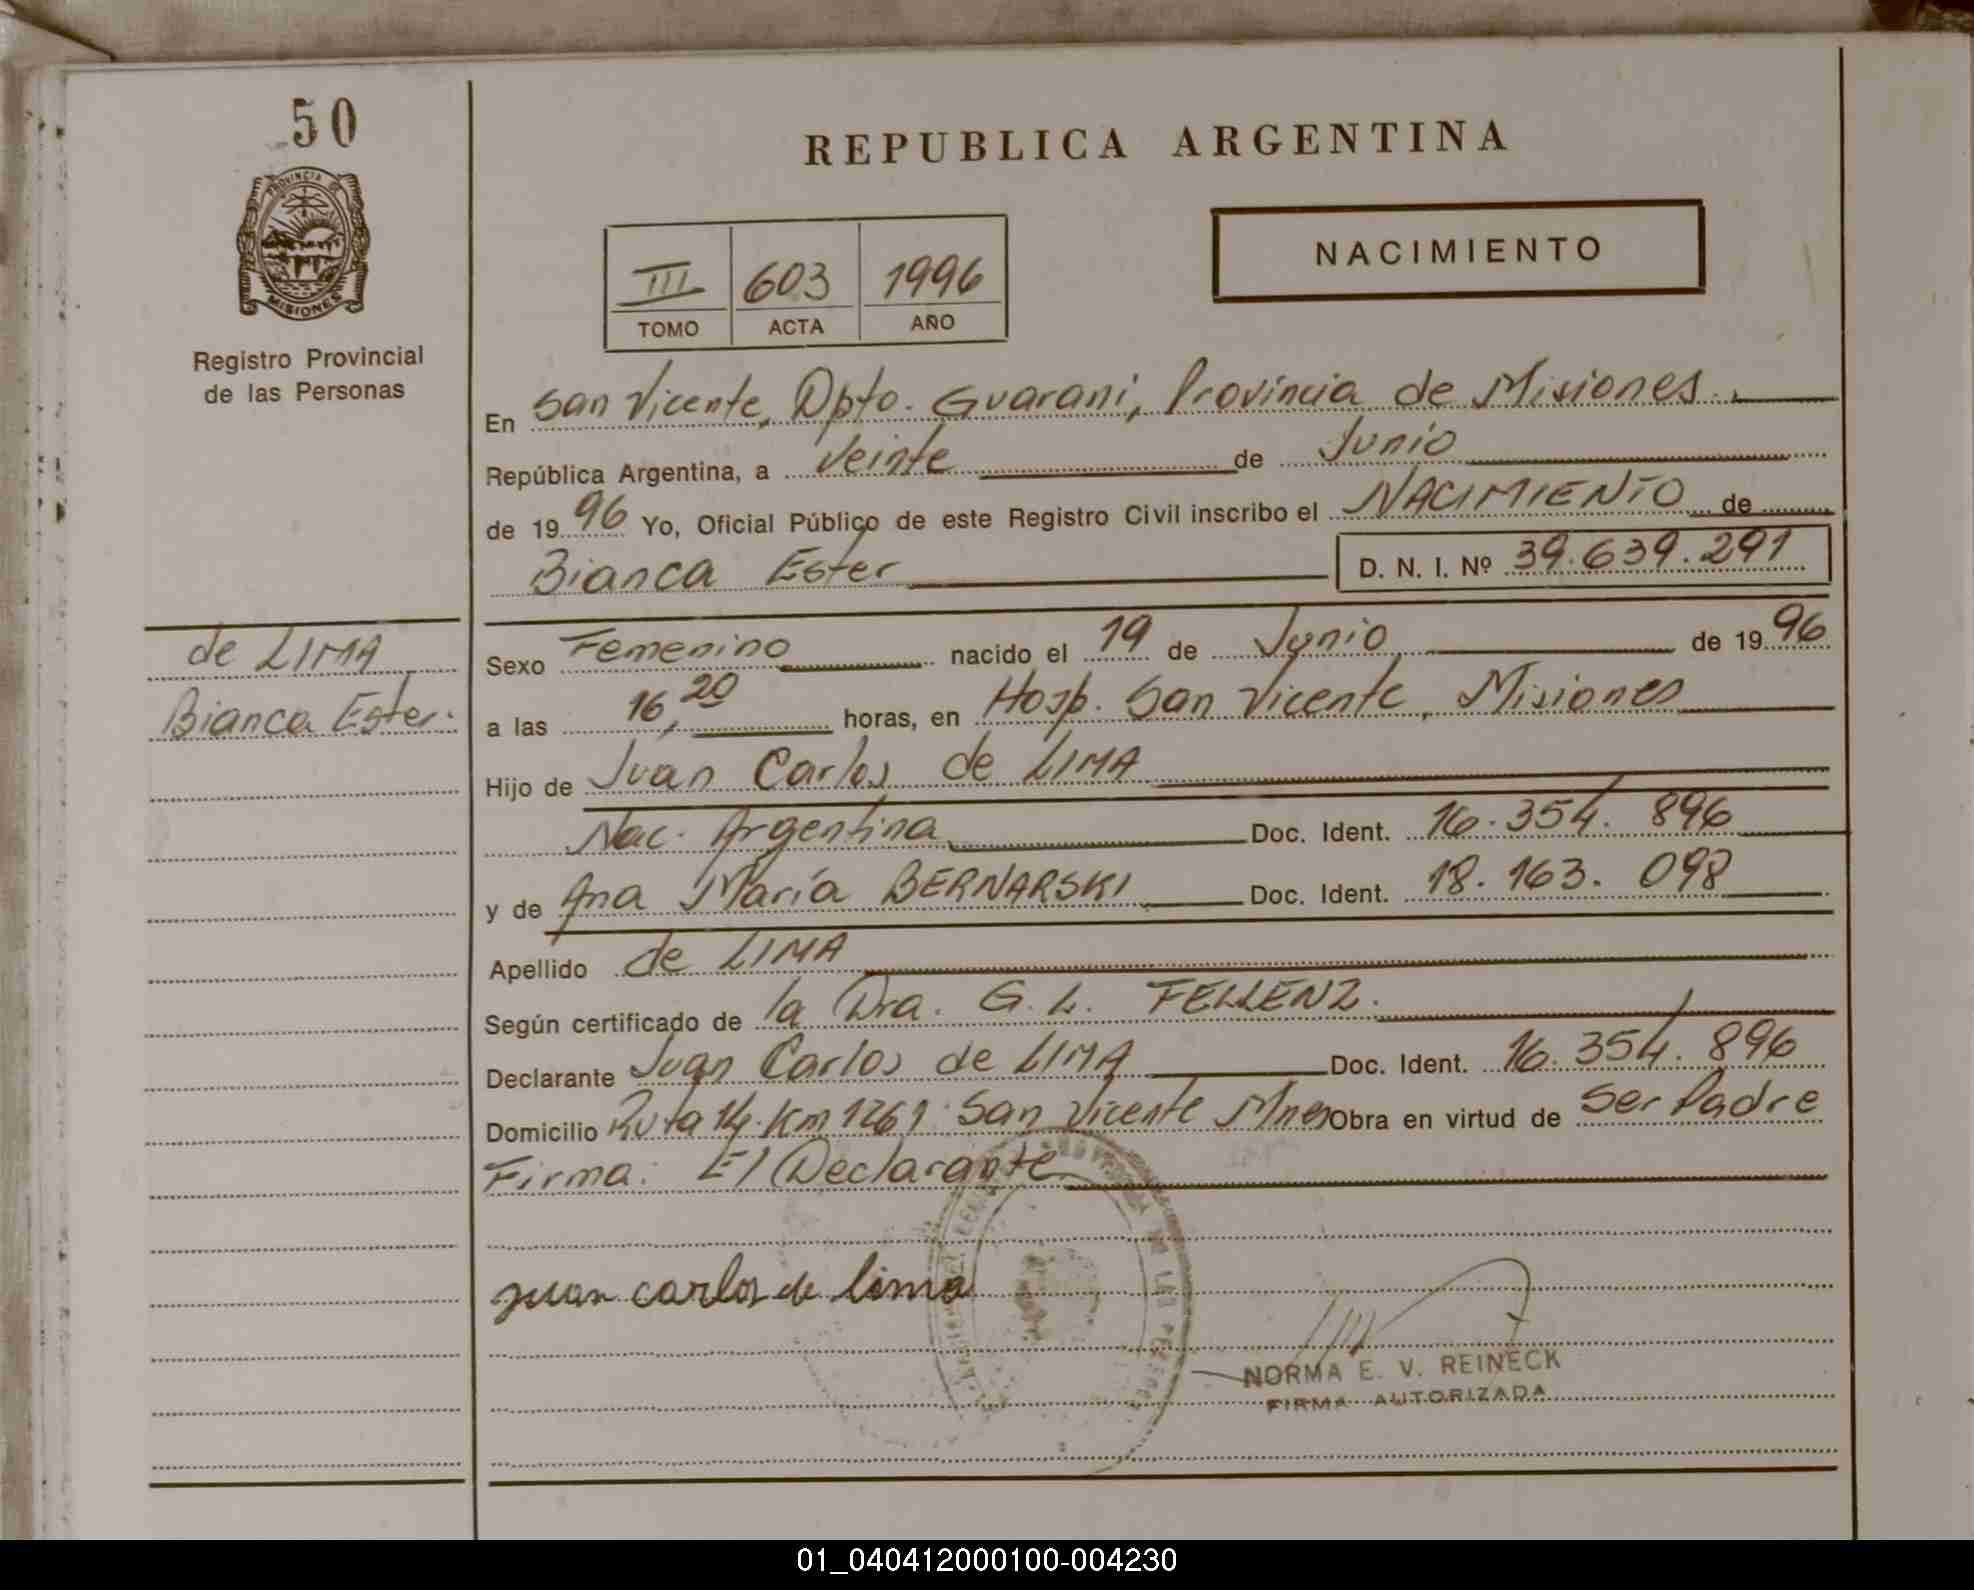 50
REPUBLICA ARGENTINA
PROVINCIA DE
MISIONES
Registro Provincial
de las Personas
NACIMIENTO
III 603 1996
TOMO ACTA AÑO
En San Vicente, Dpto. Guarani, Provincia de Misiones.
República Argentina, a veinte de Junio
de 1996 Yo, Oficial Público de este Registro Civil inscribo el NACIMIENTO de
Bianca Ester D. N. I. Nº 39.639.291
de LIMA
Bianca Ester.
Sexo Femenino nacido el 19 de Junio de 1996
a las 16,20 horas, en Hosp. San Vicente, Misiones
Hijo de Juan Carlos de LIMA
Nac. Argentina Doc. Ident. 16.354.896
y de Ana María BERNARSKI Doc. Ident. 18.163.098
Apellido de LIMA
Según certificado de la Dra. G. L. FELLENZ.
Declarante Juan Carlos de LIMA Doc. Ident. 16.354.896
Domicilio Ruta 14. Km 1261. San Vicente Mnes Obra en virtud de Ser Padre
Firma: El Declarante
juan carlos de lima
NORMA E. V. REINECK
FIRMA AUTORIZADA
01_040412000100-004230